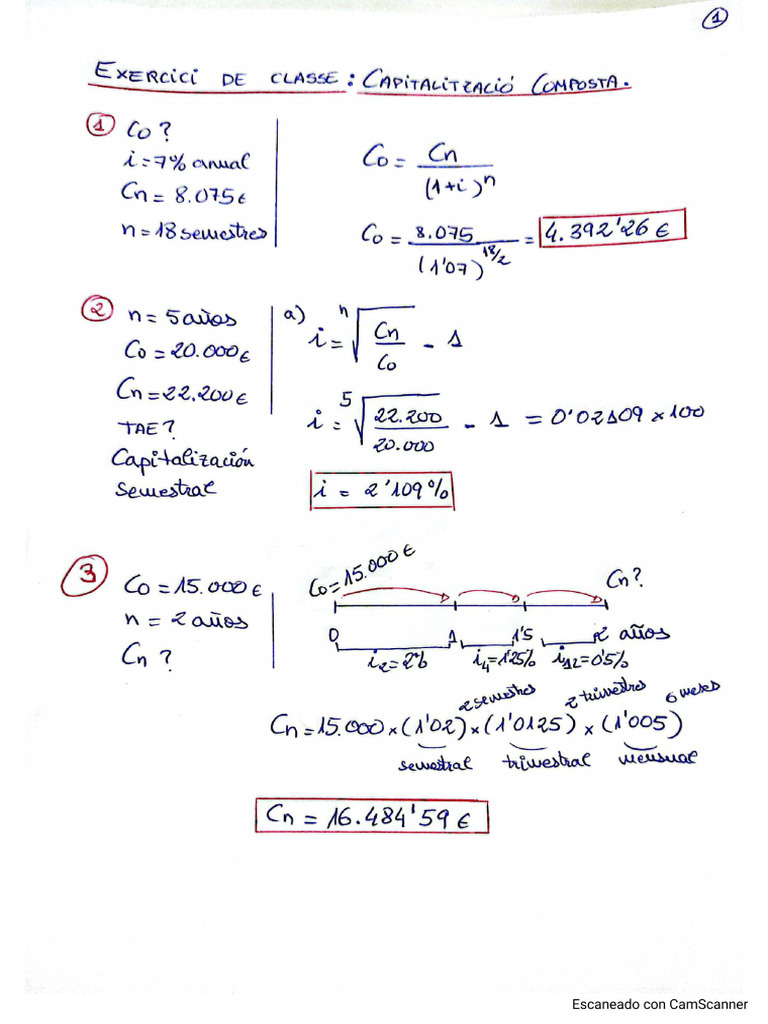 1
EXERCICI DE CLASSE: CAPITALITZACIÓ COMPOSTA.
1 Co?
i=7% anual
Cn=8.075€
n=18 semestres
Co = Cn / (1+i)^n
Co = 8.075 / (1'07)^18/2 = 4.392'26 €
2 n=5 años
Co=20.000€
Cn=22.200€
TAE?
Capitalización
Semestral
a) i = n√(Cn/Co) - 1
i = 5√(22.200/20.000) - 1 = 0'02109 x 100
i = 2'109%
3 Co=15.000€
n=2 años
Cn?
Co=15.000€ Cn?
0 1 1'5 2 años
i2=2% i4=1'25% i12=0'5%
2 semestres 2 trimestres 6 meses
Cn=15.000 x (1'02) x (1'0125) x (1'005)
semestral trimestral mensual
Cn = 16.484'59 €
Escaneado con CamScanner